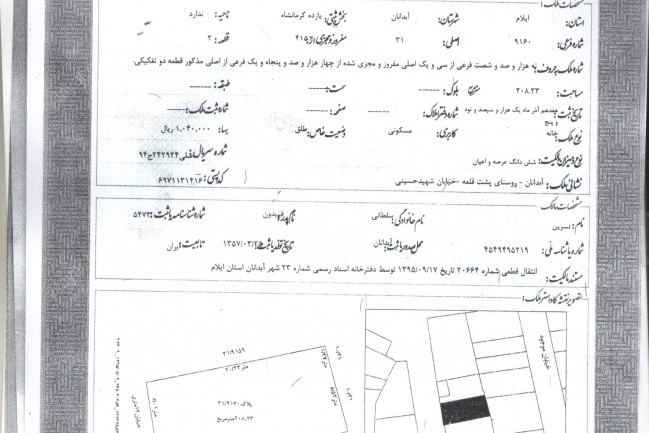 مشخصات ملک:
استان: ایلام شهرستان: آبدانان بخش ثبتی: یازده کرمانشاه ناحیه: ندارد
شماره فرعی: ۹۱۶۰ اصلی: ۳۱ مفروز و مجزی از: ۴۱۵ قطعه: ۲
شماره ملک به حروف: نه هزار و صد و شصت فرعی از سی و یک اصلی مفروز و مجزی شده از چهار هزار و صد و پنجاه و یک فرعی از اصلی مذکور قطعه دو تفکیکی.
مساحت: ۲۰۸.۲۳ بلوک: ------ سمت: ------ طبقه: ------
تاریخ ثبت: هفدهم آذر ماه یک هزار و سیصد و نود و پنج شماره دفتر املاک: ------ صفحه: ------ شماره ثبت ملک: ------
نوع ملک: خانه کاربری: مسکونی وضعیت خاص: طلق بها: ۱.۰۴۰.۰۰۰ ریال
نوع و میزان مالکیت: شش دانگ عرصه و اعیان شماره سریال: ۲۴۲۹۳۴ ج ۹۴
نشانی ملک: آبدانان - روستای پشت قلعه - خیابان شهیدحسینی کد پستی: ۶۹۷۱۱۳۱۴۱۶
مشخصات مالک
نام: نسرین نام خانوادگی: سلطانی نام پدر: فریدون شماره شناسنامه یا ثبت: ۵۴۷۲
شماره یا شناسه ملی: ۴۵۴۹۴۹۵۳۱۹ محل صدور یا ثبت: آبدانان تاریخ تولد یا ثبت: ۱۳۵۷/۰۳/ تابعیت: ایران
مستند مالکیت: انتقال قطعی شماره ۲۰۶۶۴ تاریخ ۱۳۹۵/۰۹/۱۷ توسط دفترخانه اسناد رسمی شماره ۲۳ شهر آبدانان استان ایلام
تصویر نقشه کاداستر ملک:
۳۱/۹۱۵۹
متر ۲۰/۲۳
پلاک ۳۱/۹۱۶۰
۲۰۸.۲۳ مترمربع